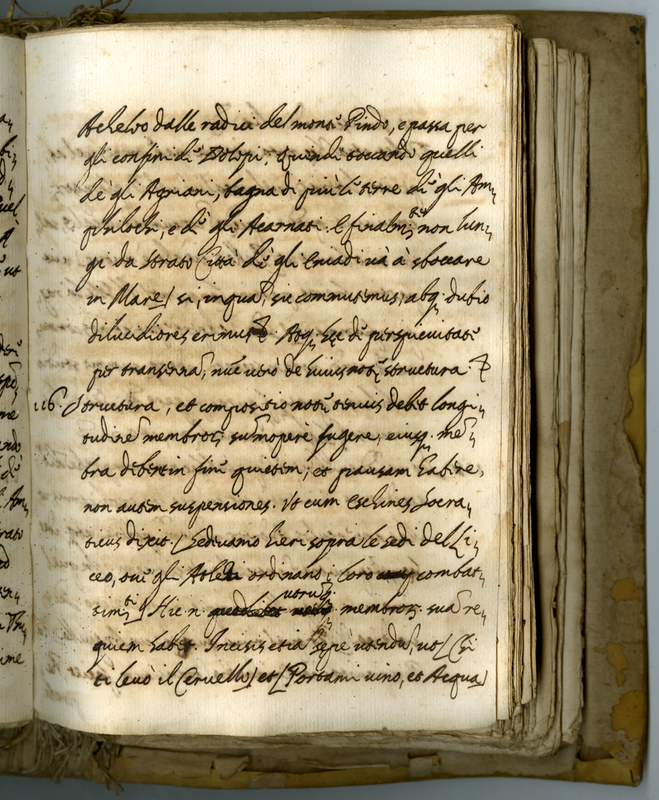 Acheloo dalle radici del monte Pindo, e passa per
gli confini di Dolopi, quindi toccando quelli
de gli Agriani, bagna di più li terre di gli Am,
philochi, e di gli Acarnati. E finalmte non lun,
gi da Strato Citta di gli Eniadi và à sboccare
in Mare] si, inquã, sic commutemus, absq; dubio
dilucidiores erimus. Atq; hęc di perspicuitate
per transennã, nũc verò de huius notę structura.
116. Structura, et compositio notę tenuis debet longi,
tudinẽ membrorũ summopere fugere, eiusq; mẽ,
bra debent in finẽ quietem, et pausam habere,
non autem suspensiones. Vt cum Eschines Socra,
ticus dixit. [Sedevamo hieri sopra le sedi del Li,
ceo, ove gli Atleti ordinano i loro combat,
timti] Hic n. utrumq; membrorũ suã re,
quiem habet. Incisis etiã sępe utendũ, ut [Chi
ti levò il Cervello] et [Portami vino, et Acqua]